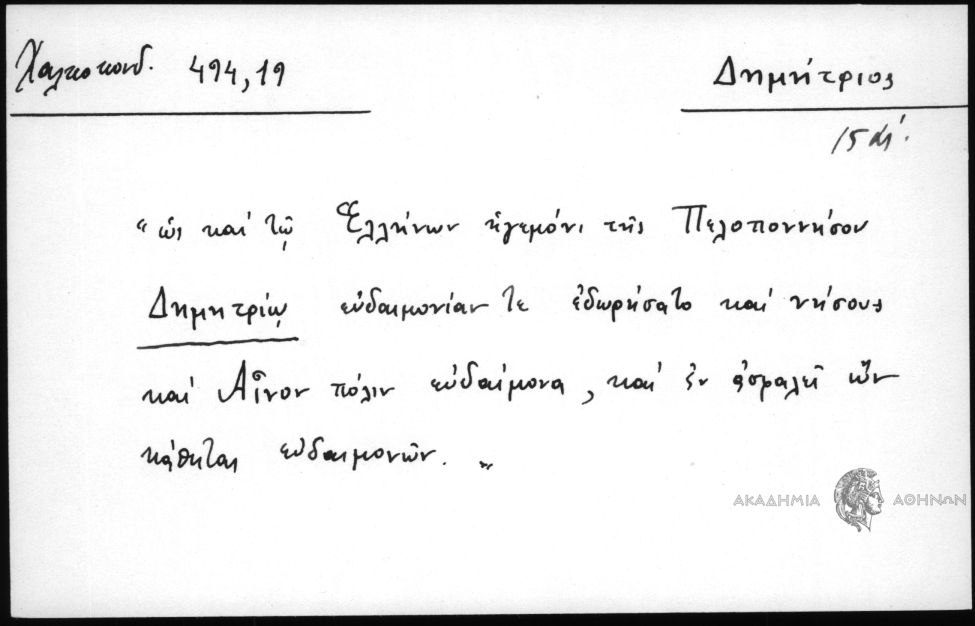 Χαλκοκονδ. 494,19
Δημήτριος
15 αι΄.
“ ὡς καί τῷ Ἑλλήνων ἡγεμόνι τῆς Πελοποννήσου
Δημητρίῳ εὐδαιμονίαν τε ἐδωρήσατο καί νήσους
καί Αἶνον πόλιν εὐδαίμονα, καί ἐν ἀσφαλεῖ ὤν
κάθηται εὐδαιμονῶν. „
ΑΚΑΔΗΜΙΑ ΑΘΗΝΩΝ